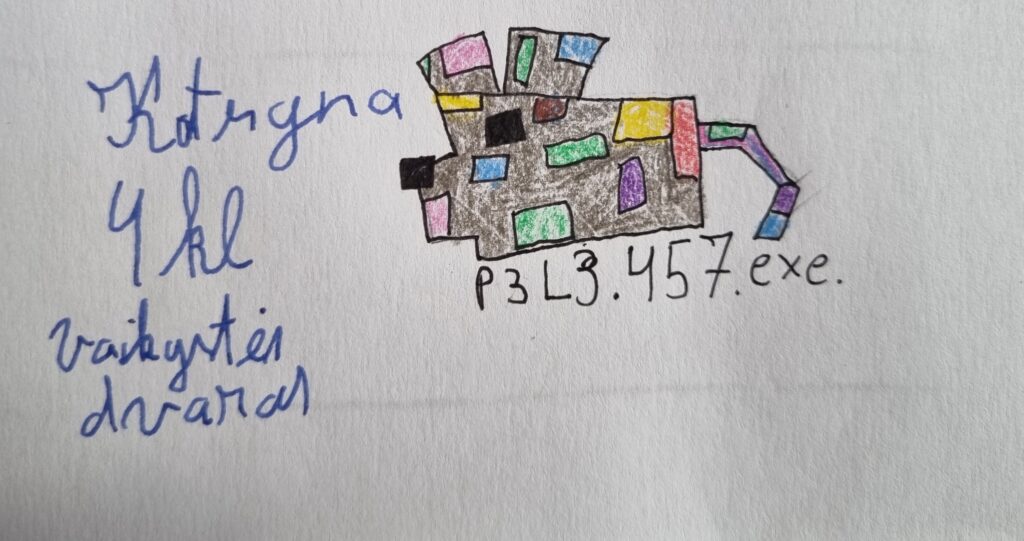 Kotryna
4 kl
vaikystės
dvaras
P3L3.457.exe.